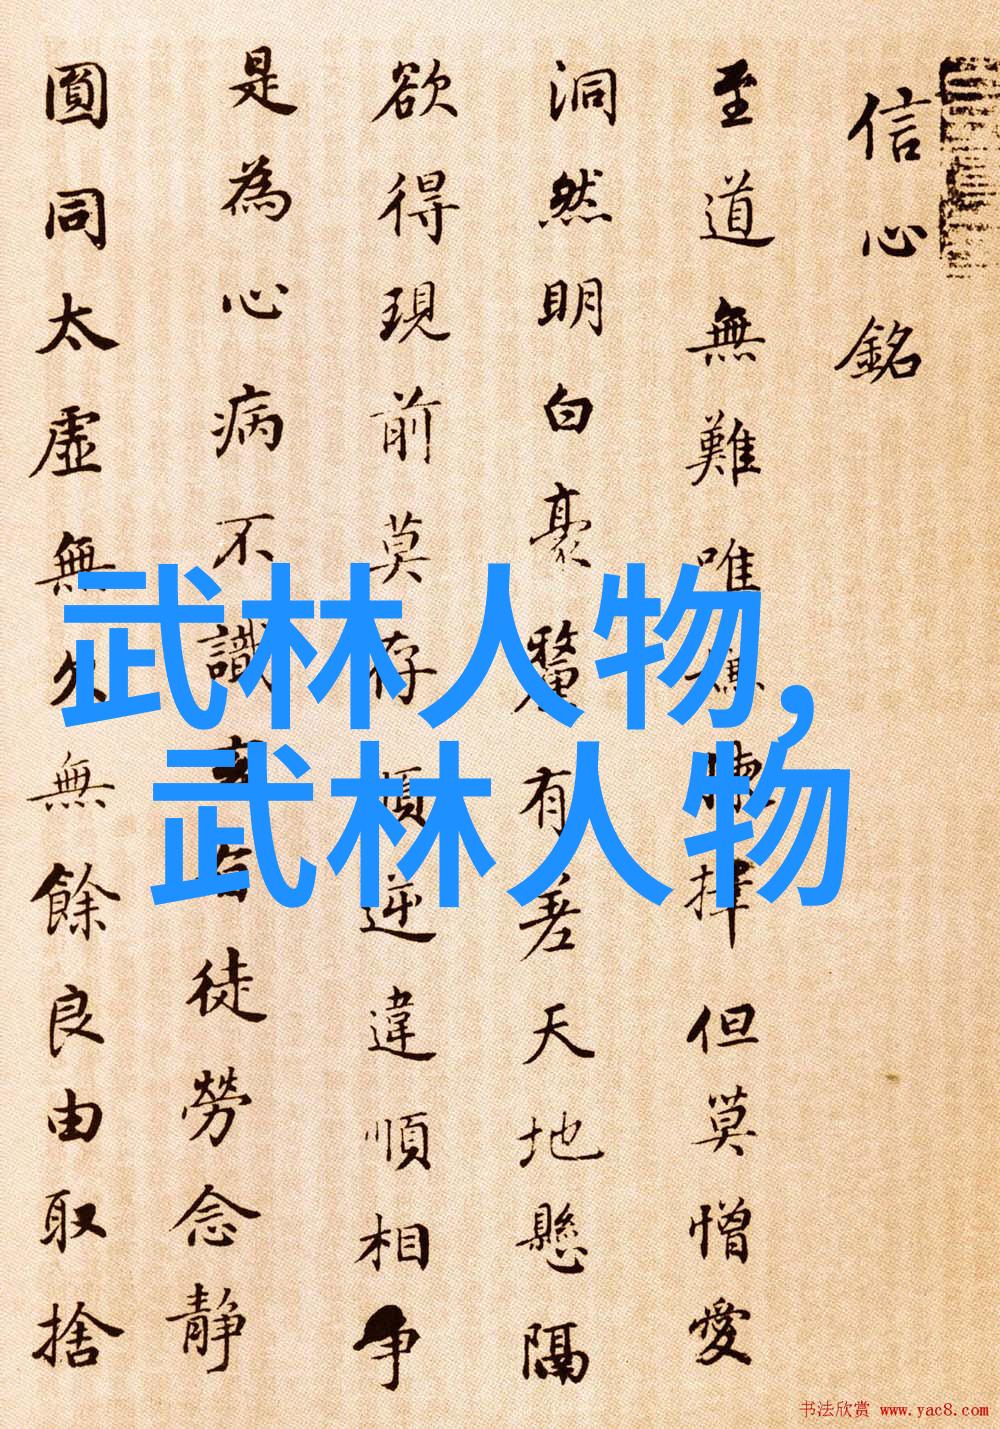 信心銘
至道無難唯嫌揀擇但莫憎愛
洞然明白豪釐有差天地懸隔
欲得現前莫存順逆違順相争
是為心病不識玄旨徒勞念静
圓同太虚無欠無餘良由取捨
武林人物,
武林人物
书法欣赏 www.yac8.com